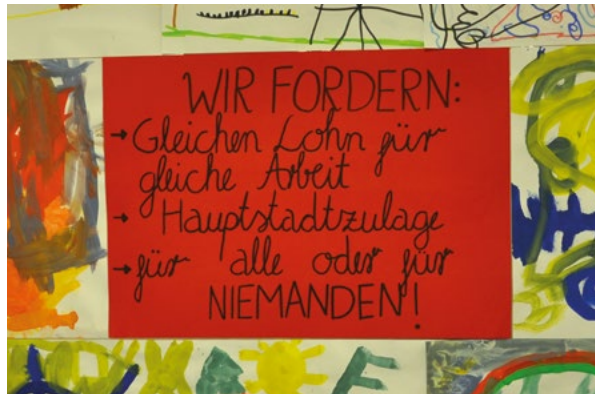 WIR FORDERN:
→ Gleichen Lohn für
gleiche Arbeit
→ Hauptstadtzulage
→ für alle oder für
NIEMANDEN!